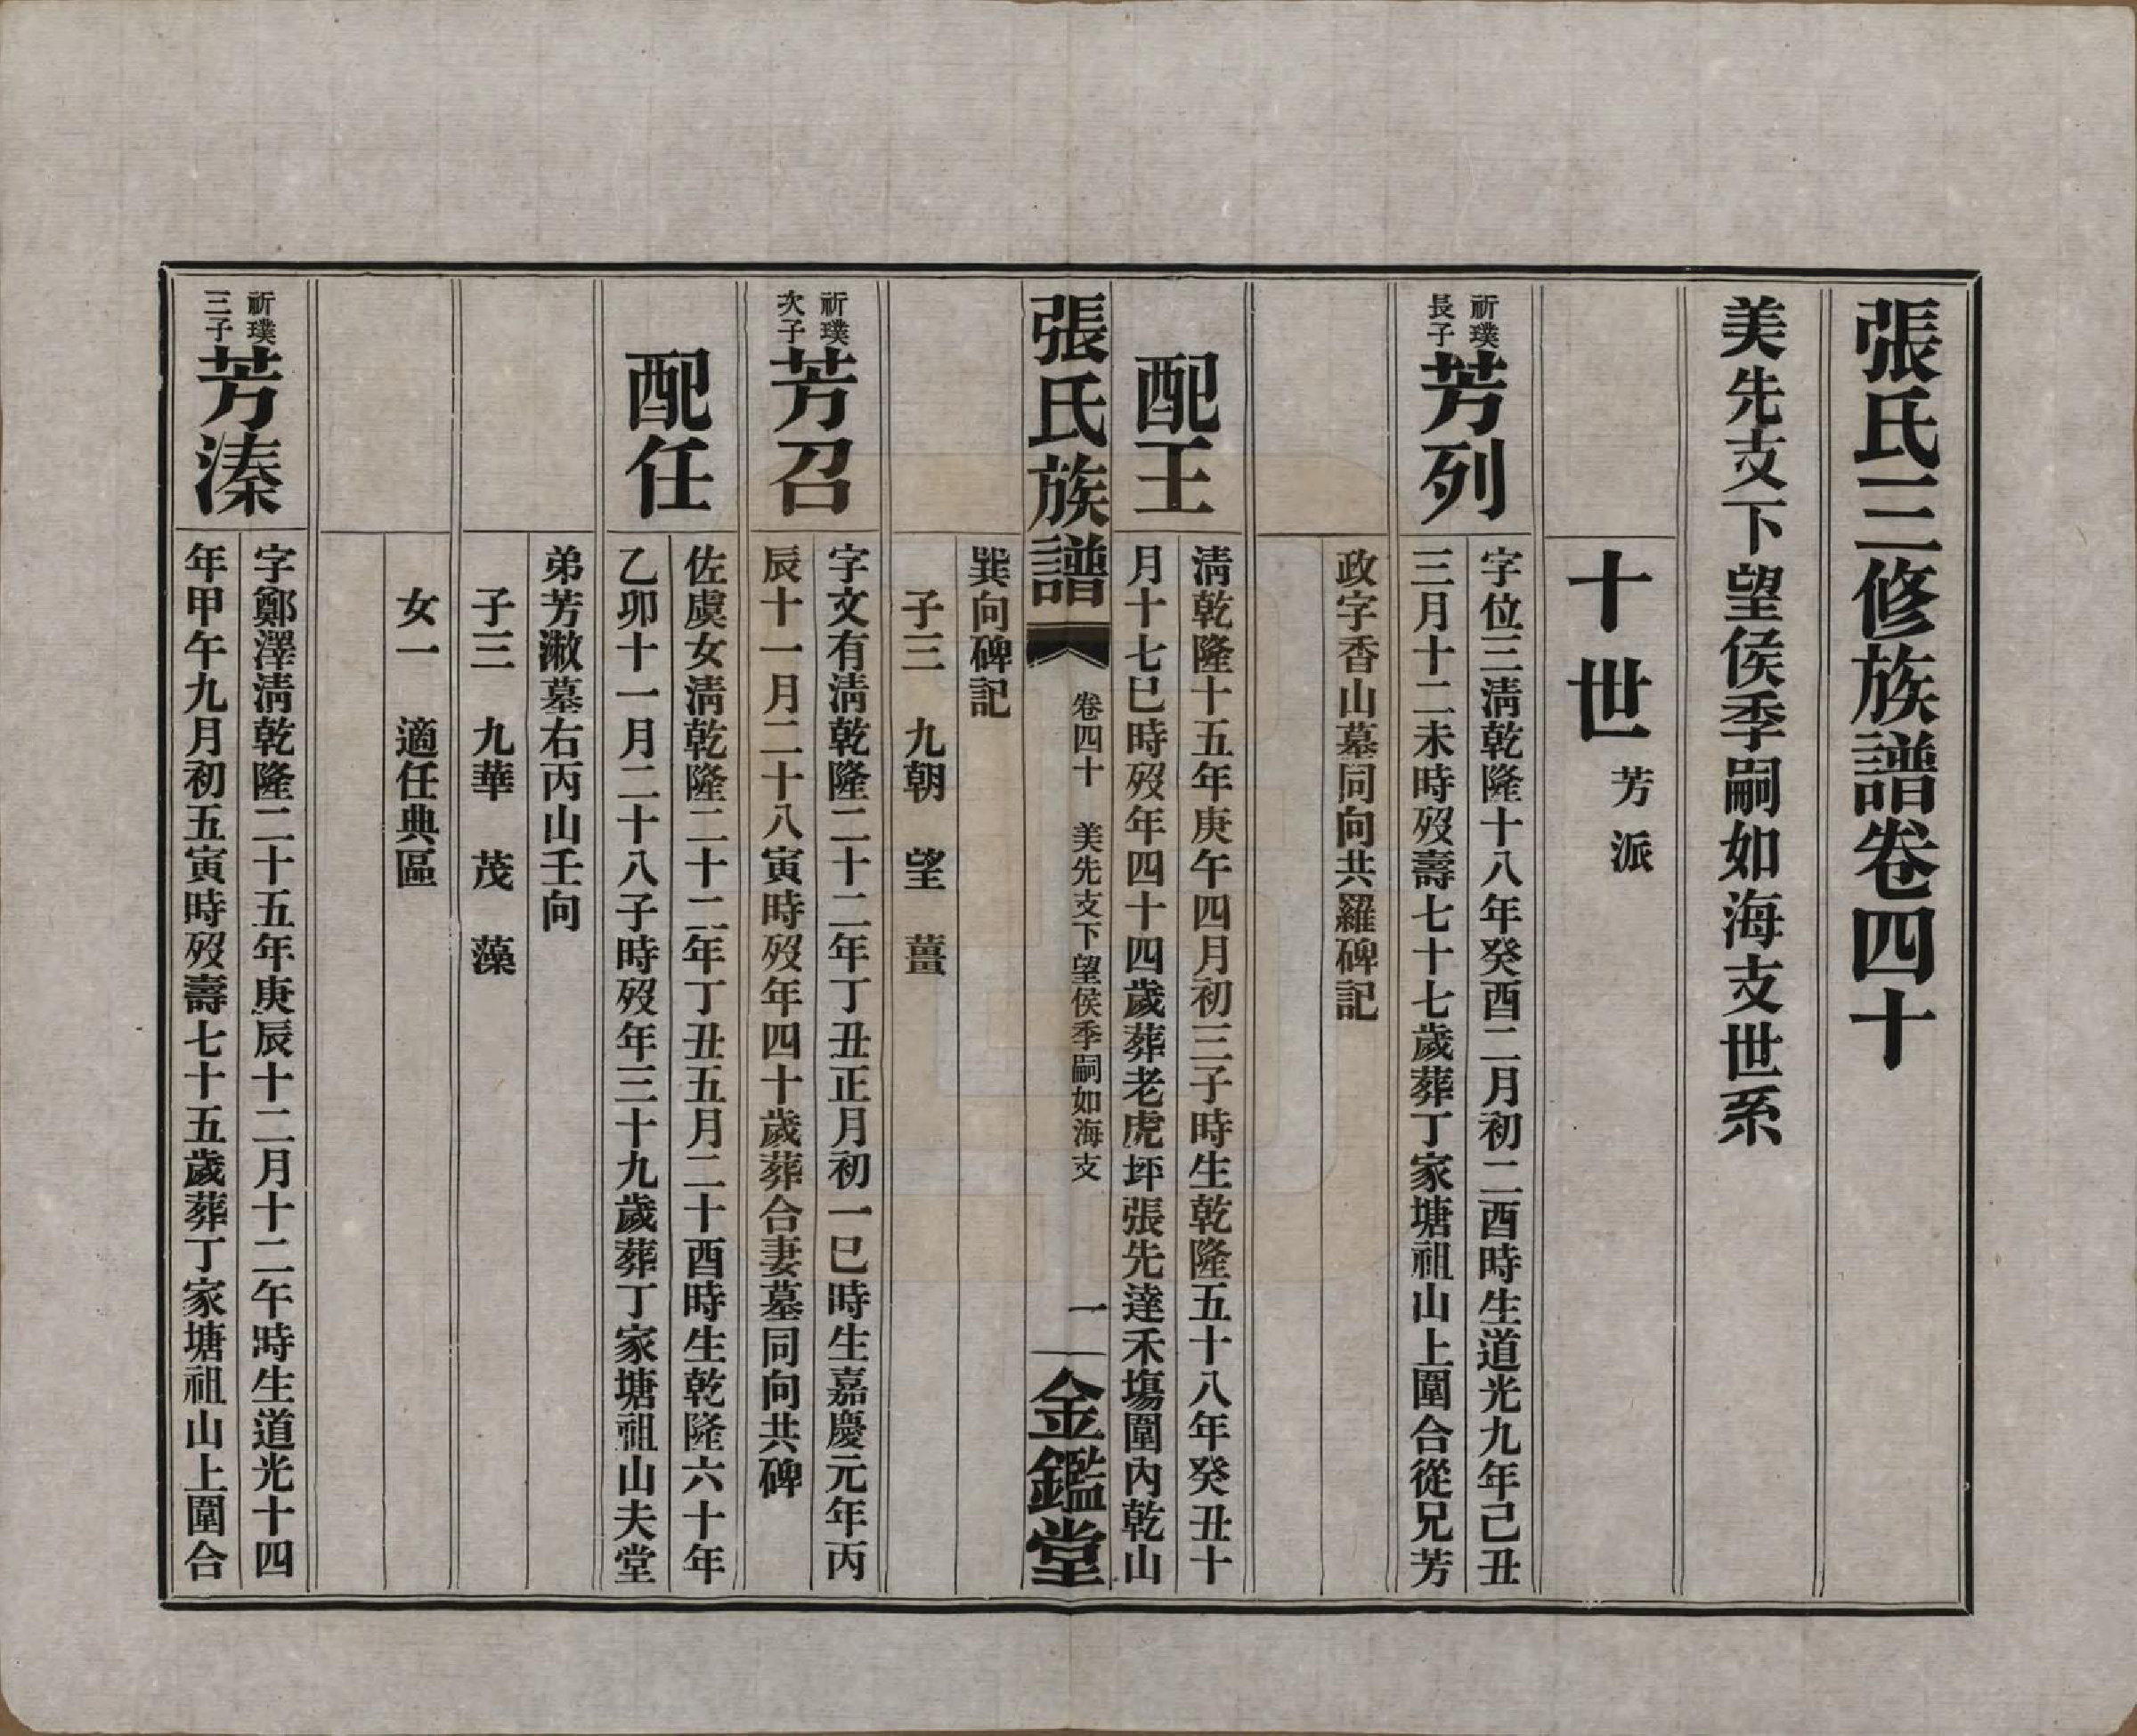 張氏三修族譜卷四十
美先支下望侯季嗣如海支世系
十世芳派
祈璞
長子
芳列
字位三清乾隆十八年癸酉二月初二酉時生道光九年己丑
三月十二未時歿壽七十七歲葬丁家塘祖山上圍合從兄芳
政字香山墓同向共羅碑記
配王
清乾隆十五年庚午四月初三子時生乾隆五十八年癸丑十
月十七巳時歿年四十四歲葬老虎坪張先達禾塲圍內乾山
張氏族譜
卷四十　美先支下望侯季嗣如海支
一
金鑑堂
巽向碑記
子三　九朝　望　薑
祈璞
次子
芳召
字文有清乾隆二十二年丁丑正月初一巳時生嘉慶元年丙
辰十一月二十八寅時歿年四十歲葬合妻墓同向共碑
配任
佐虞女清乾隆二十二年丁丑五月二十酉時生乾隆六十年
乙卯十一月二十八子時歿年三十九歲葬丁家塘祖山夫堂
弟芳潎墓右丙山壬向
子三　九華　茂　藻
女一　適任典區
祈璞
三子
芳溱
字鄭澤清乾隆二十五年庚辰十二月十二午時生道光十四
年甲午九月初五寅時歿壽七十五歲葬丁家塘祖山上圍合